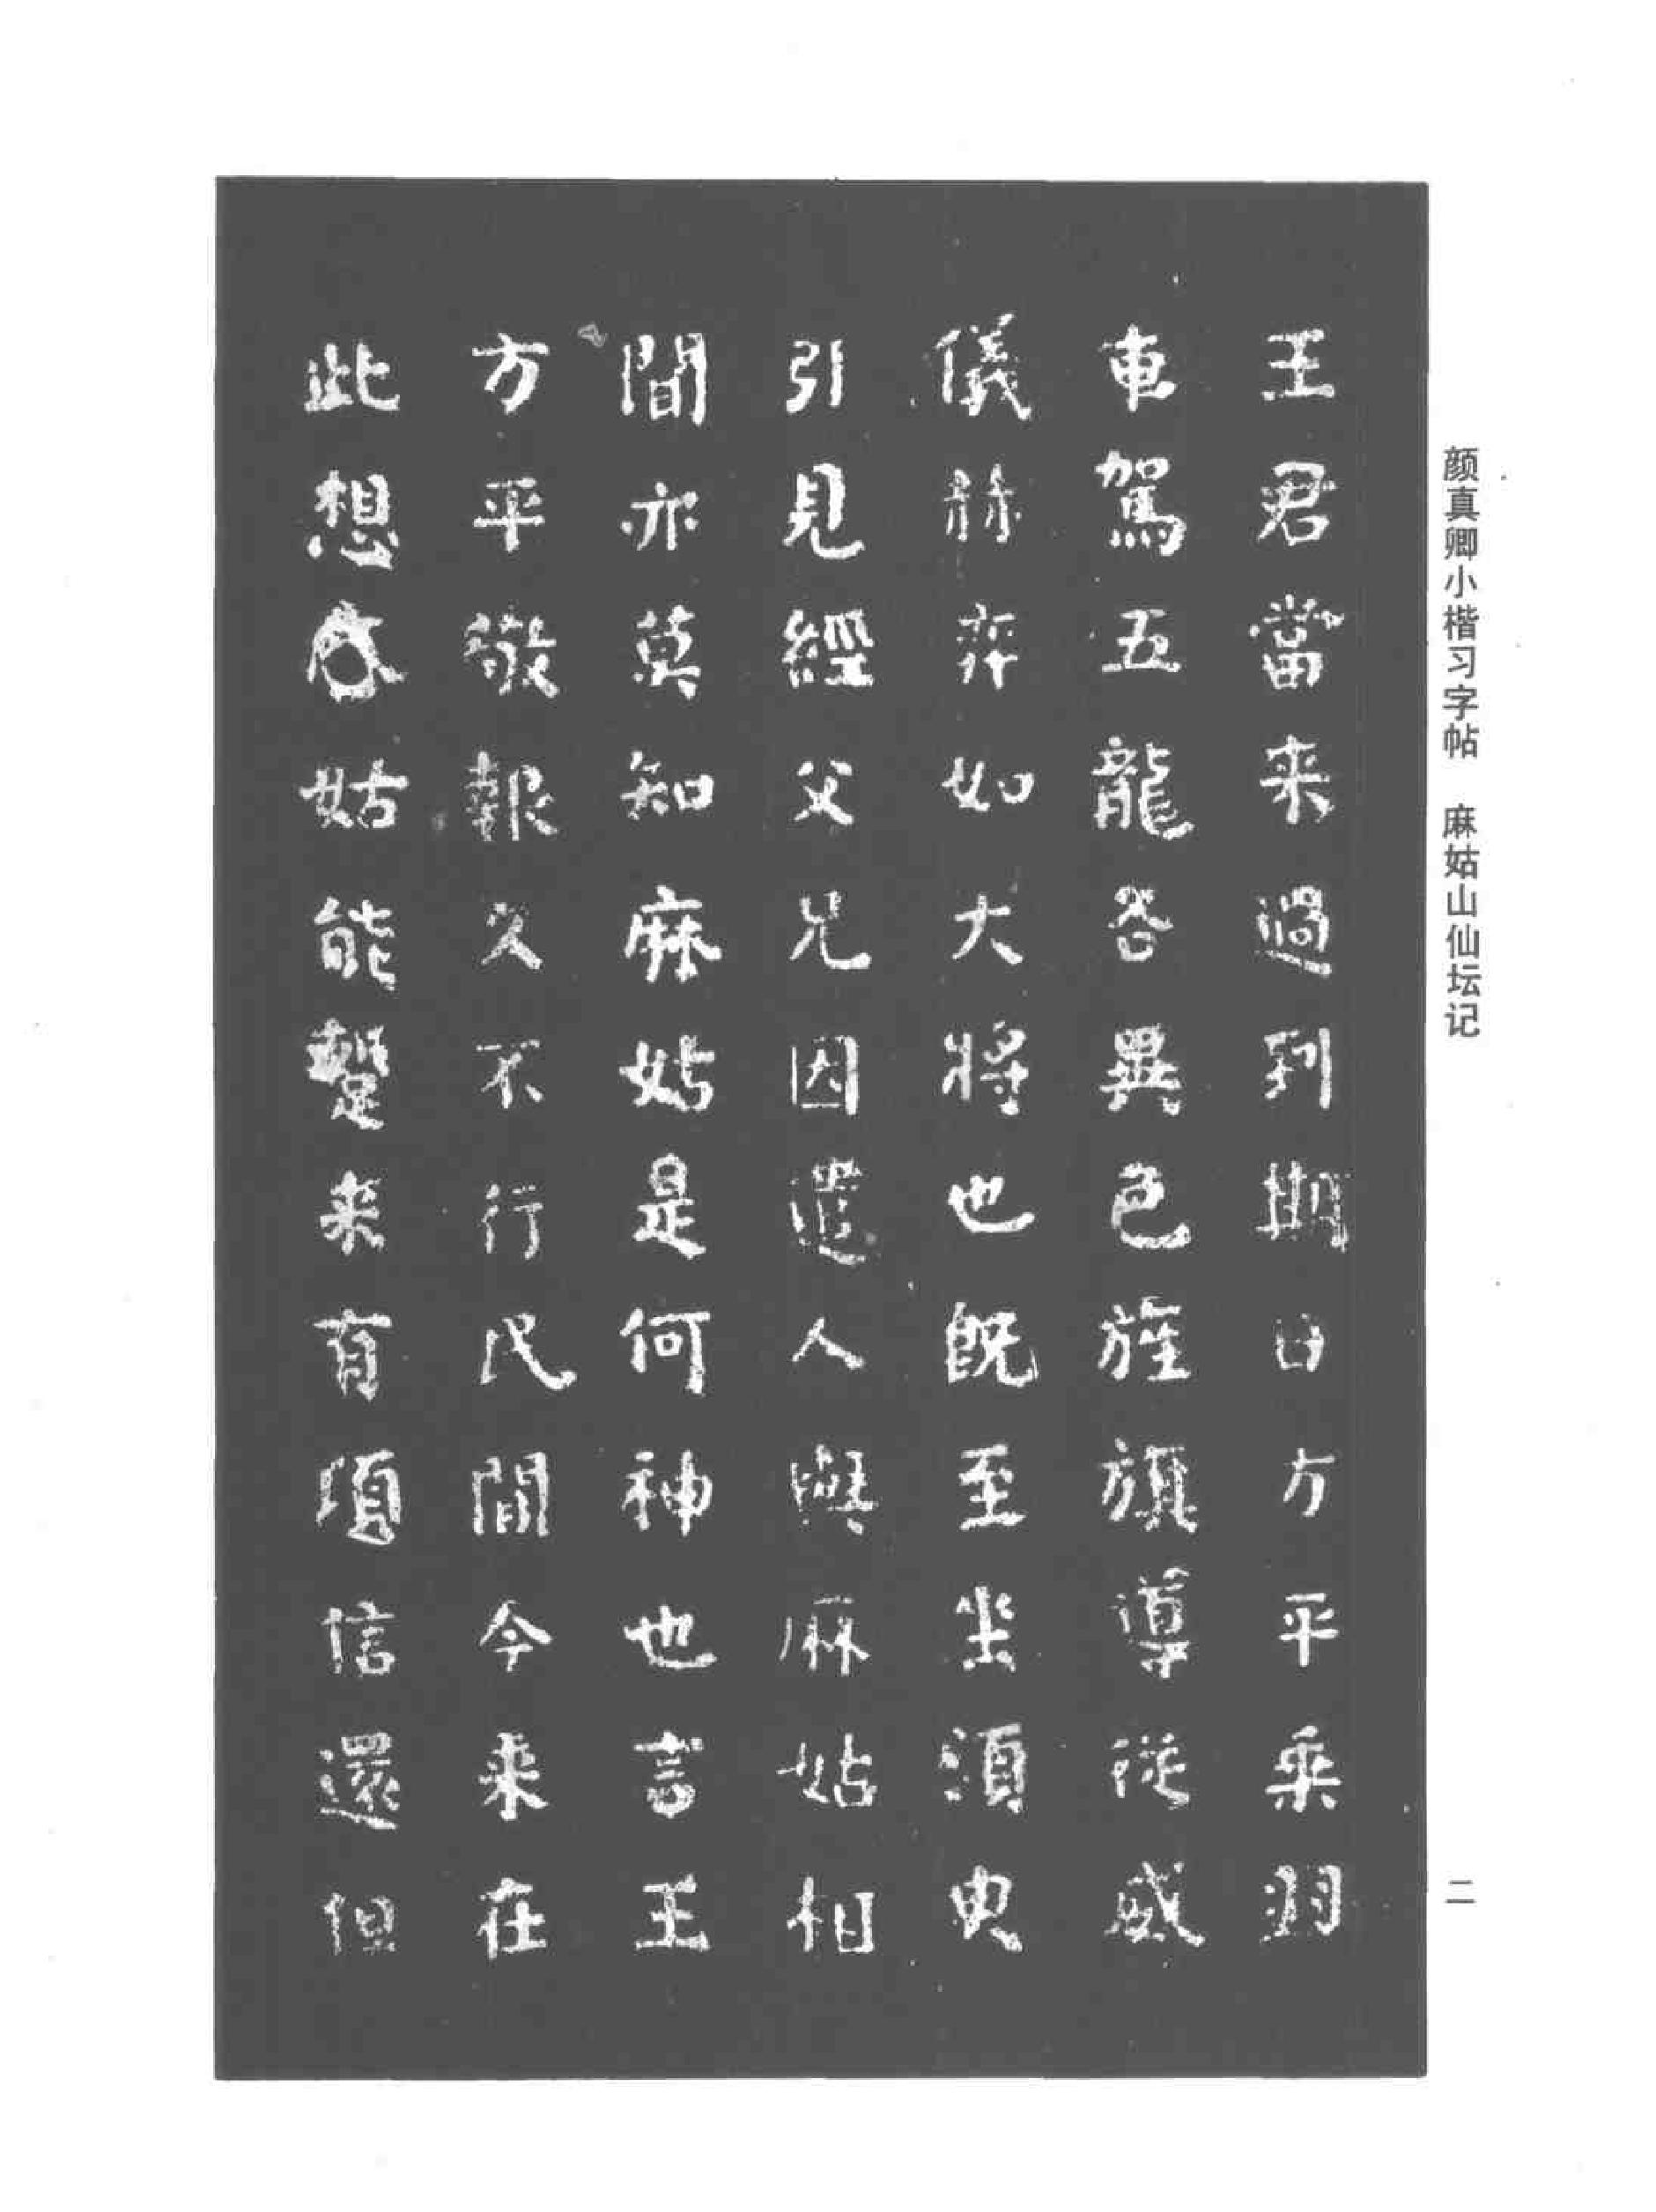 颜真卿小楷习字帖 麻姑山仙坛记
二
王君當来過到期日方平乘羽
車駕五龍各異色旌旗導從威
儀赫弈如大將也既至坐須臾
引見經父兄因遣人與麻姑相
間亦莫知麻姑是何神也言王
方平敬報久不行民間今来在
此想麻姑能蹔来有頃信還但